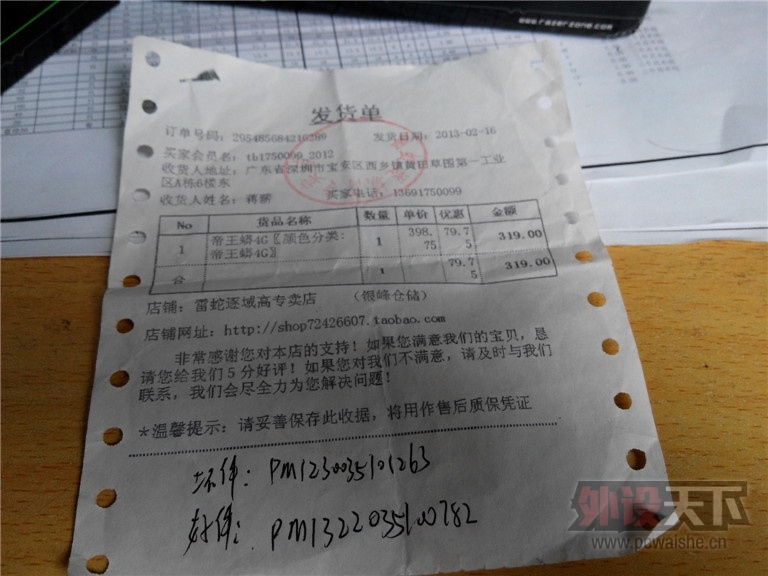 www.razerzone.com
发货单
订单号码: 295485684216289 发货日期: 2013-02-16
买家会员名: tb1750099_2012
收货人地址: 广东省深圳市宝安区西乡镇黄田草围第一工业
区A栋6楼东
收货人姓名: 蒋新 买家电话: 13691750099
No 货品名称 数量 单价 优惠 金额
1 帝王蟒4G〖颜色分类: 1 398. 79.7 319.00
帝王蟒4G〗 75 5
合 1 79.7 319.00
5
店铺: 雷蛇逐域高专卖店 (银峰仓储)
店铺网址: http://shop72426607.taobao.com
非常感谢您对本店的支持! 如果您满意我们的宝贝, 恳
请您给我们5分好评! 如果您对我们不满意, 请及时与我们
联系, 我们会尽全力为您解决问题!
*温馨提示: 请妥善保存此收据, 将用作售后质保凭证
坏件: PM1230035101263
好件: PM1322035100782
外设天下
www.pcwaishe.cn